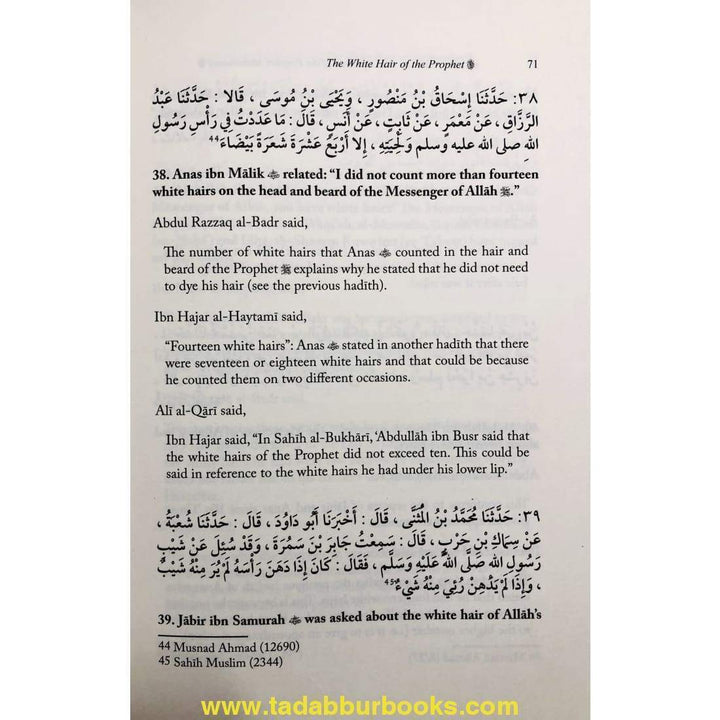 The White Hair of the Prophet ﷺ 71
٣٨: حَدَّثَنَا إِسْحَاقُ بْنُ مَنْصُورٍ ، وَيَحْيَى بْنُ مُوسَى ، قَالا : حَدَّثَنَا عَبْدُ
الرَّزَّاقِ ، عَنْ مَعْمَرٍ ، عَنْ ثَابِتٍ ، عَنْ أَنَسٍ ، قَالَ : مَا عَدَدْتُ فِي رَأْسِ رَسُولِ
اللهِ صلى الله عليه وسلم وَلِحْيَتِهِ ، إِلا أَرْبَعَ عَشْرَةَ شَعَرَةً بَيْضَاءَ44
38. Anas ibn Mālik related: “I did not count more than fourteen
white hairs on the head and beard of the Messenger of Allāh ﷺ.”
Abdul Razzaq al-Badr said,
The number of white hairs that Anas counted in the hair and
beard of the Prophet ﷺ explains why he stated that he did not need
to dye his hair (see the previous hadīth).
Ibn Hajar al-Haytamī said,
“Fourteen white hairs”: Anas stated in another hadīth that there
were seventeen or eighteen white hairs and that could be because
he counted them on two different occasions.
Alī al-Qārī said,
Ibn Hajar said, “In Sahīh al-Bukhārī, ‘Abdullāh ibn Busr said that
the white hairs of the Prophet did not exceed ten. This could be
said in reference to the white hairs he had under his lower lip.”
٣٩: حَدَّثَنَا مُحَمَّدُ بْنُ الْمُثَنَّى ، قَالَ : أَخْبَرَنَا أَبُو دَاوُدَ ، قَالَ : حَدَّثَنَا شُعْبَةُ ،
عَنْ سِمَاكِ بْنِ حَرْبٍ ، قَالَ : سَمِعْتُ جَابِرَ بْنَ سَمُرَةَ ، وَقَدْ سُئِلَ عَنْ شَيْبِ
رَسُولِ اللهِ صَلَّى اللهُ عَلَيْهِ وَسَلَّمَ ، فَقَالَ : كَانَ إِذَا دَهَنَ رَأْسَهُ لَمْ يُرَ مِنْهُ شَيْبٌ
، وَإِذَا لَمْ يَدْهِنْ رُئِيَ مِنْهُ شَيْءٌ45
39. Jābir ibn Samurah was asked about the white hair of Allāh’s
44 Musnad Ahmad (12690)
45 Sahīh Muslim (2344)
www.tadabburbooks.com